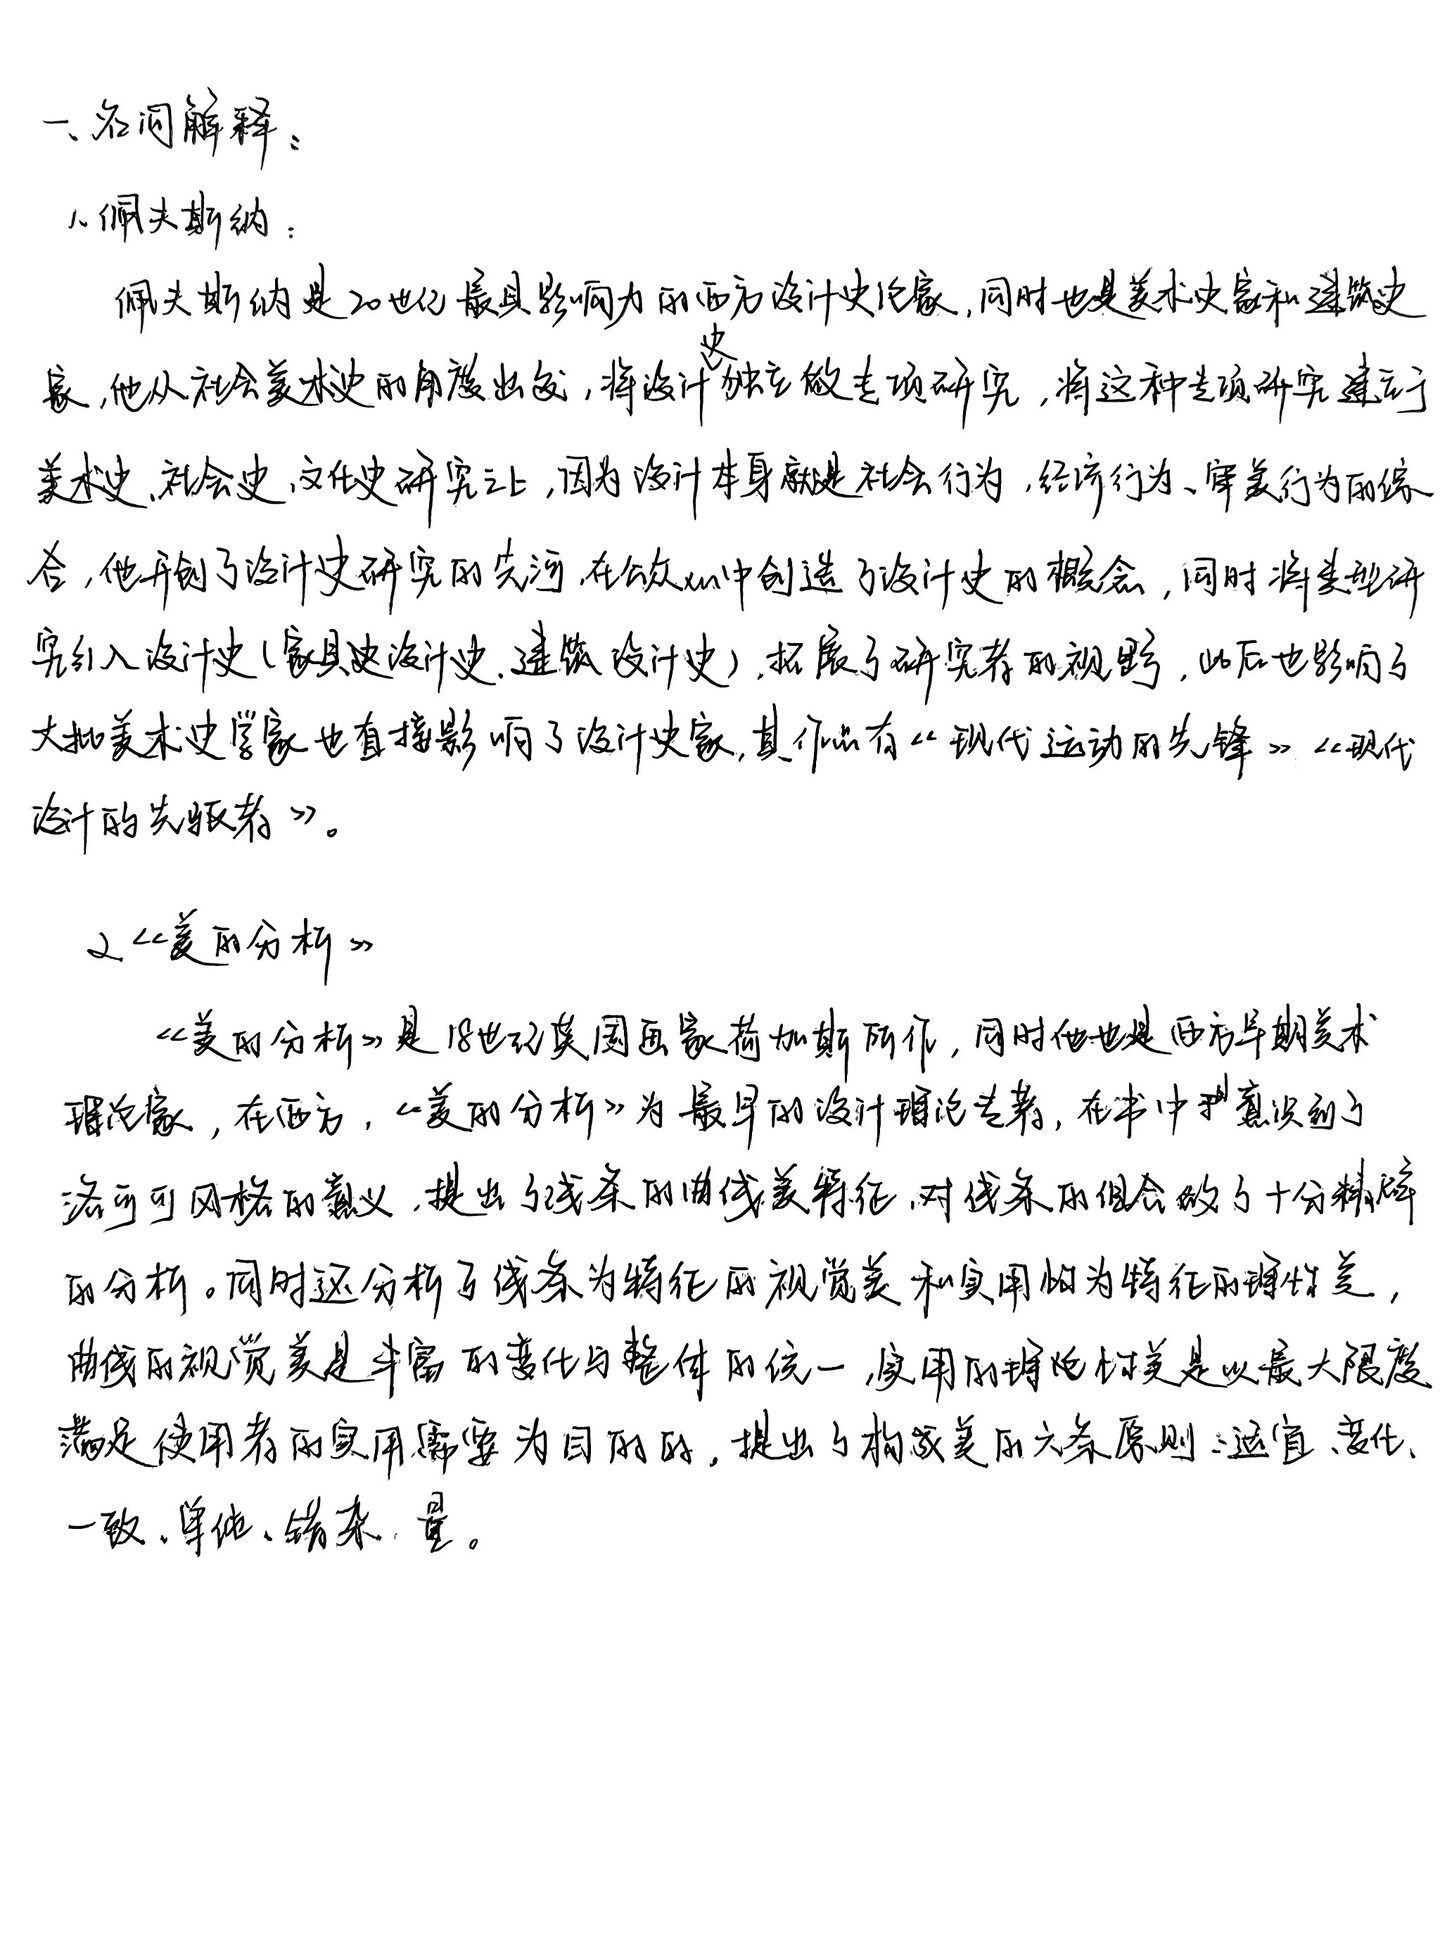 一、名词解释：
1. 佩夫斯纳：
佩夫斯纳是20世纪最具影响力的西方设计史论家，同时也是美术史家和建筑史
家，他从社会美术史的角度出发，将设计史独立做专项研究，将这种专项研究建立于
美术史、社会史、文化史研究之上，因为设计本身就是社会行为、经济行为、审美行为的综
合，他开创了设计史研究的先河，在公众中创造了设计史的概念，同时将类型研
究引入设计史（家具史设计史、建筑设计史），拓展了研究者的视野，此后也影响了
大批美术史学家也直接影响了设计史家，其作品有《现代运动的先锋》《现代
设计的先驱者》。
2.《美的分析》
《美的分析》是18世纪英国画家荷加斯所作，同时他也是西方早期美术
理论家，在西方，《美的分析》为最早的设计理论专著，在书中意识到了
洛可可风格的意义，提出了线条的曲线美特征，对线条的组合做了十分精辟
的分析。同时还分析了线条为特征的视觉美和实用性为特征的理性美，
曲线的视觉美是丰富的变化与整体的统一，实用的理性美是以最大限度
满足使用者的实用需要为目的的，提出了构成美的六条原则：适宜、变化、
一致、单纯、错杂、量。